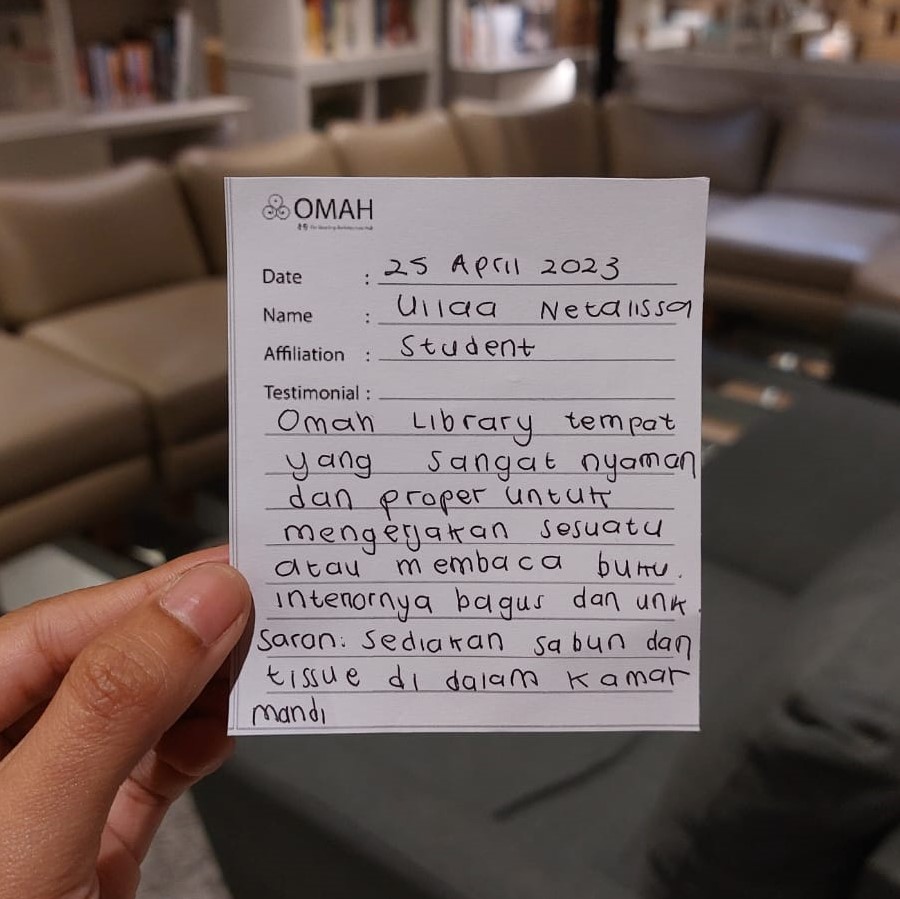 OMAH
Date : 25 April 2023
Name : Ullaa Netalissa
Affiliation : Student
Testimonial :
Omah Library tempat
yang sangat nyaman
dan proper untuk
mengerjakan sesuatu
atau membaca buku.
interiornya bagus dan unik.
saran: sediakan sabun dan
tissue di dalam kamar
mandi